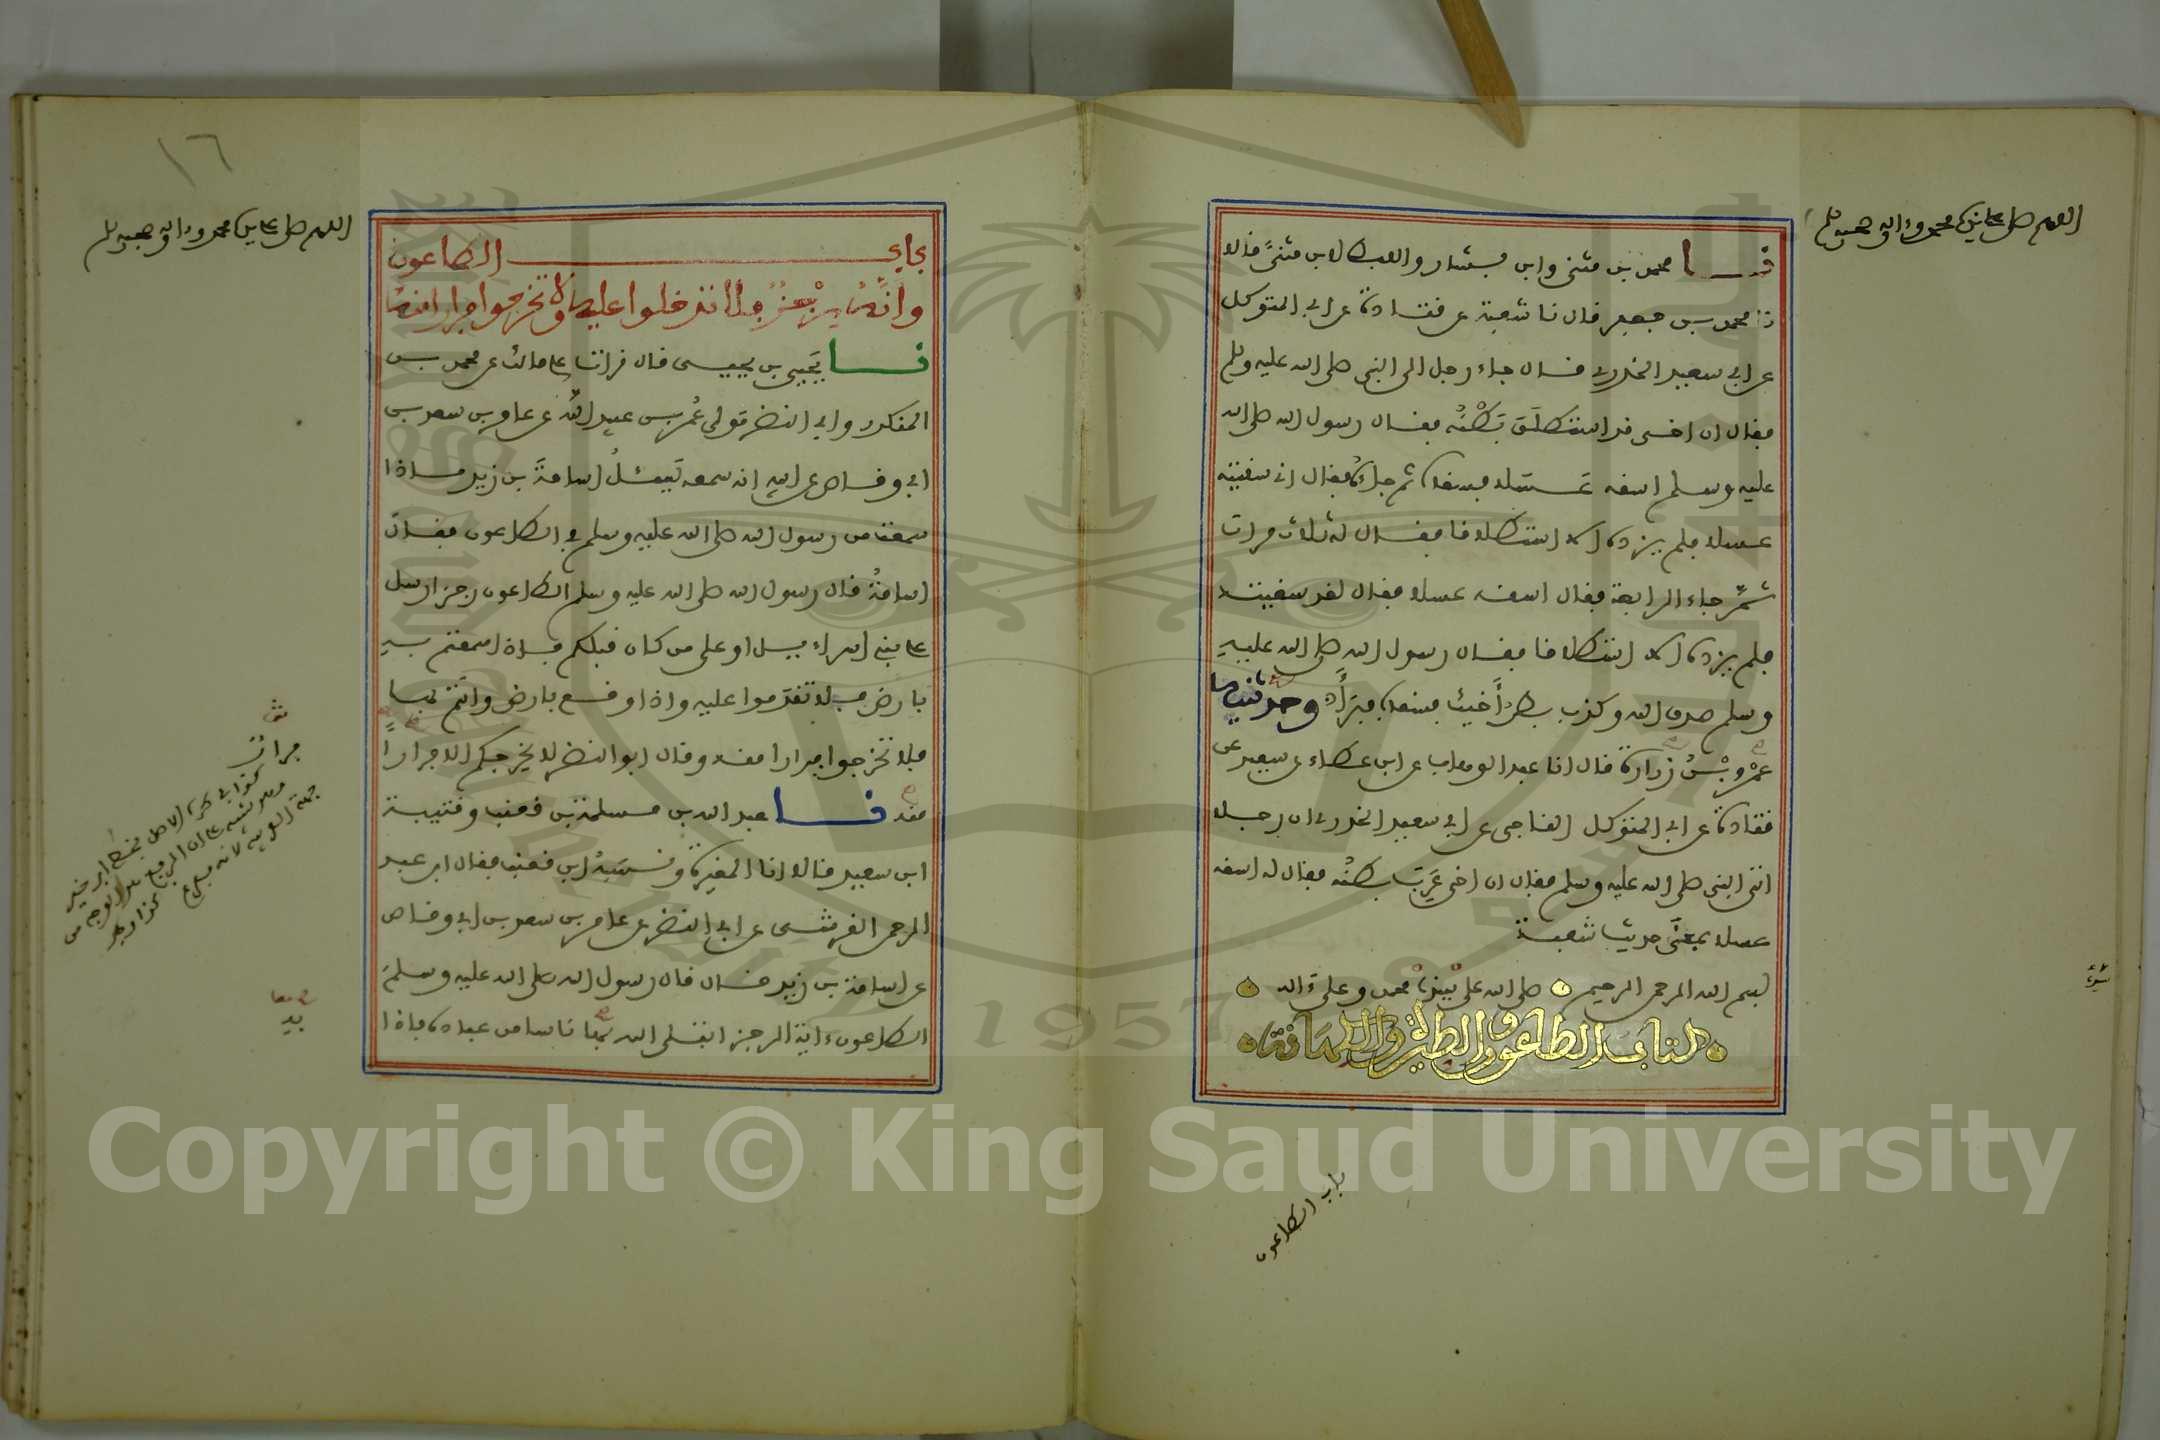 اللهم صل على سيدنا محمد وءاله وصحبه وسلم
نا محمد بن مثنى وابن بشار واللفظ لابن مثنى قالا
نا محمد بن جعفر قال نا شعبة عن قتادة عن ابي المتوكل
عن ابي سعيد الخدري قال جاء رجل الى النبي صلى الله عليه وسلم
فقال ان اخي قد استطلق بطنه فقال رسول الله صلى الله
عليه وسلم اسقه عسلا فسقاه ثم جاءه فقال اني سقيته
عسلا فلم يزده الا استطلاقا فقال له ثلاث مرات
ثم جاء الرابعة فقال اسقه عسلا فقال لقد سقيته
فلم يزده الا استطلاقا فقال رسول الله صلى الله عليه
وسلم صدق الله وكذب بطن أخيك فسقاه فبرأ وحدثنيه
عمرو بن زرارة قال انا عبد الوهاب عن ابن عطاء عن سعيد عن
قتادة عن ابي المتوكل الناجي عن ابي سعيد الخدري ان رجلا
اتى النبي صلى الله عليه وسلم فقال ان اخي عرب بطنه فقال له اسقه
عسلا بمعنى حديث شعبة
بسم الله الرحمن الرحيم صلى الله على نبينا محمد وعلى ءاله
كتاب الطاعون والطيرة والكهانة
باب الطاعون
١٦
اللهم صل على سيدنا محمد وءاله وصحبه وسلم
باب الطاعون
وانه رجز فلا تدخلوا عليه ولا تخرجوا فرارا منه
نا يحيى بن يحيى قال قرات على مالك عن محمد بن
المنكدر وابي النضر مولى عمر بن عبيد الله عن عامر بن سعد بن
ابي وقاص عن ابيه انه سمعه يسئل اسامة بن زيد ماذا
سمعت من رسول الله صلى الله عليه وسلم في الطاعون فقال
اسامة قال رسول الله صلى الله عليه وسلم الطاعون رجز ارسل
على بني اسراءيل او على من كان قبلكم فاذا سمعتم به
بارض فلا تقدموا عليه واذا وقع بارض وانتم بها
فلا تخرجوا فرارا منه وقال ابو النضر لا يخرجكم الا فرارا
منه نا عبد الله بن مسلمة بن قعنب وقتيبة
ابن سعيد قالا انا المغيرة ونسبه ابن قعنب فقال ابن عبد
الرحمن القرشي عن ابي النضر عن عامر بن سعد بن ابي وقاص
عن اسامة بن زيد قال قال رسول الله صلى الله عليه وسلم
الطاعون ءاية الرجز ابتلى الله بها ناسا من عباده فاذا
Copyright © King Saud University
1957